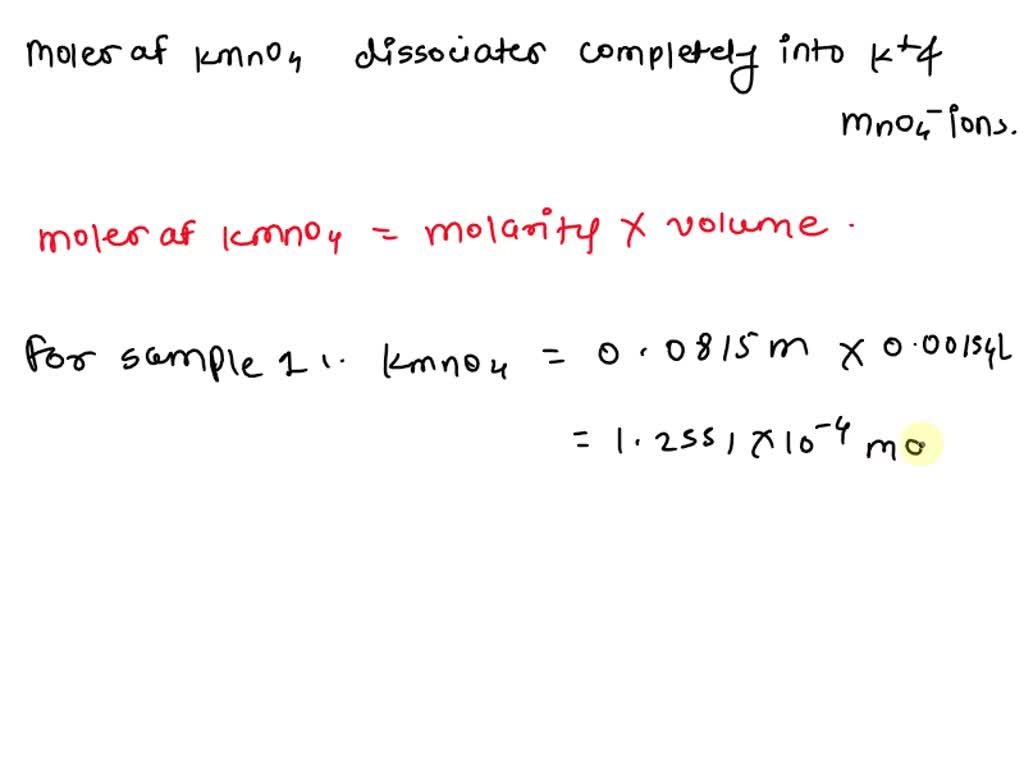 moles of kmno4 dissociates completely into k+ &
mno4- ions.
moles of kmno4 = molarity x volume.
for sample 1 :. kmno4 = 0.0815m x 0.00154L
= 1.2551 x 10-4 mo